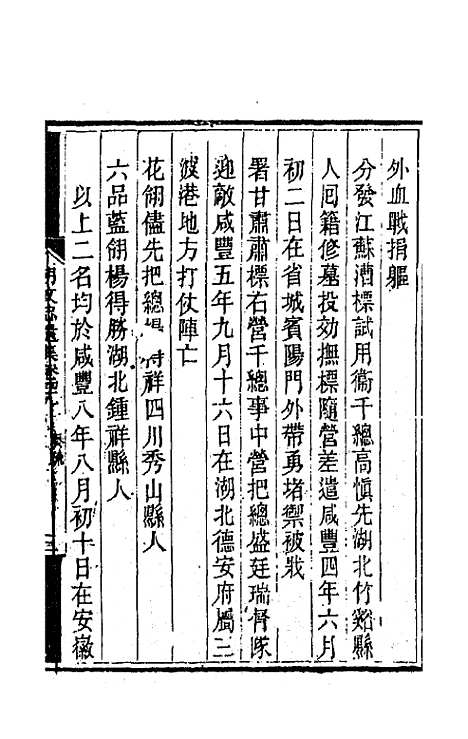 外血戰捐軀
分發江蘇漕標試用衞千總高慎先湖北竹谿縣
人囘籍修墓投効撫標隨營差遣咸豐四年六月
初二日在省城賓陽門外帶勇堵禦被戕
署甘肅肅標右營千總事中營把總盛廷瑞督隊
迎敵咸豐五年九月十六日在湖北德安府屬三
陂港地方打仗陣亡
花翎儘先把總祥四川秀山縣人
六品藍翎楊得勝湖北鍾祥縣人
以上二名均於咸豐八年八月初十日在安徽